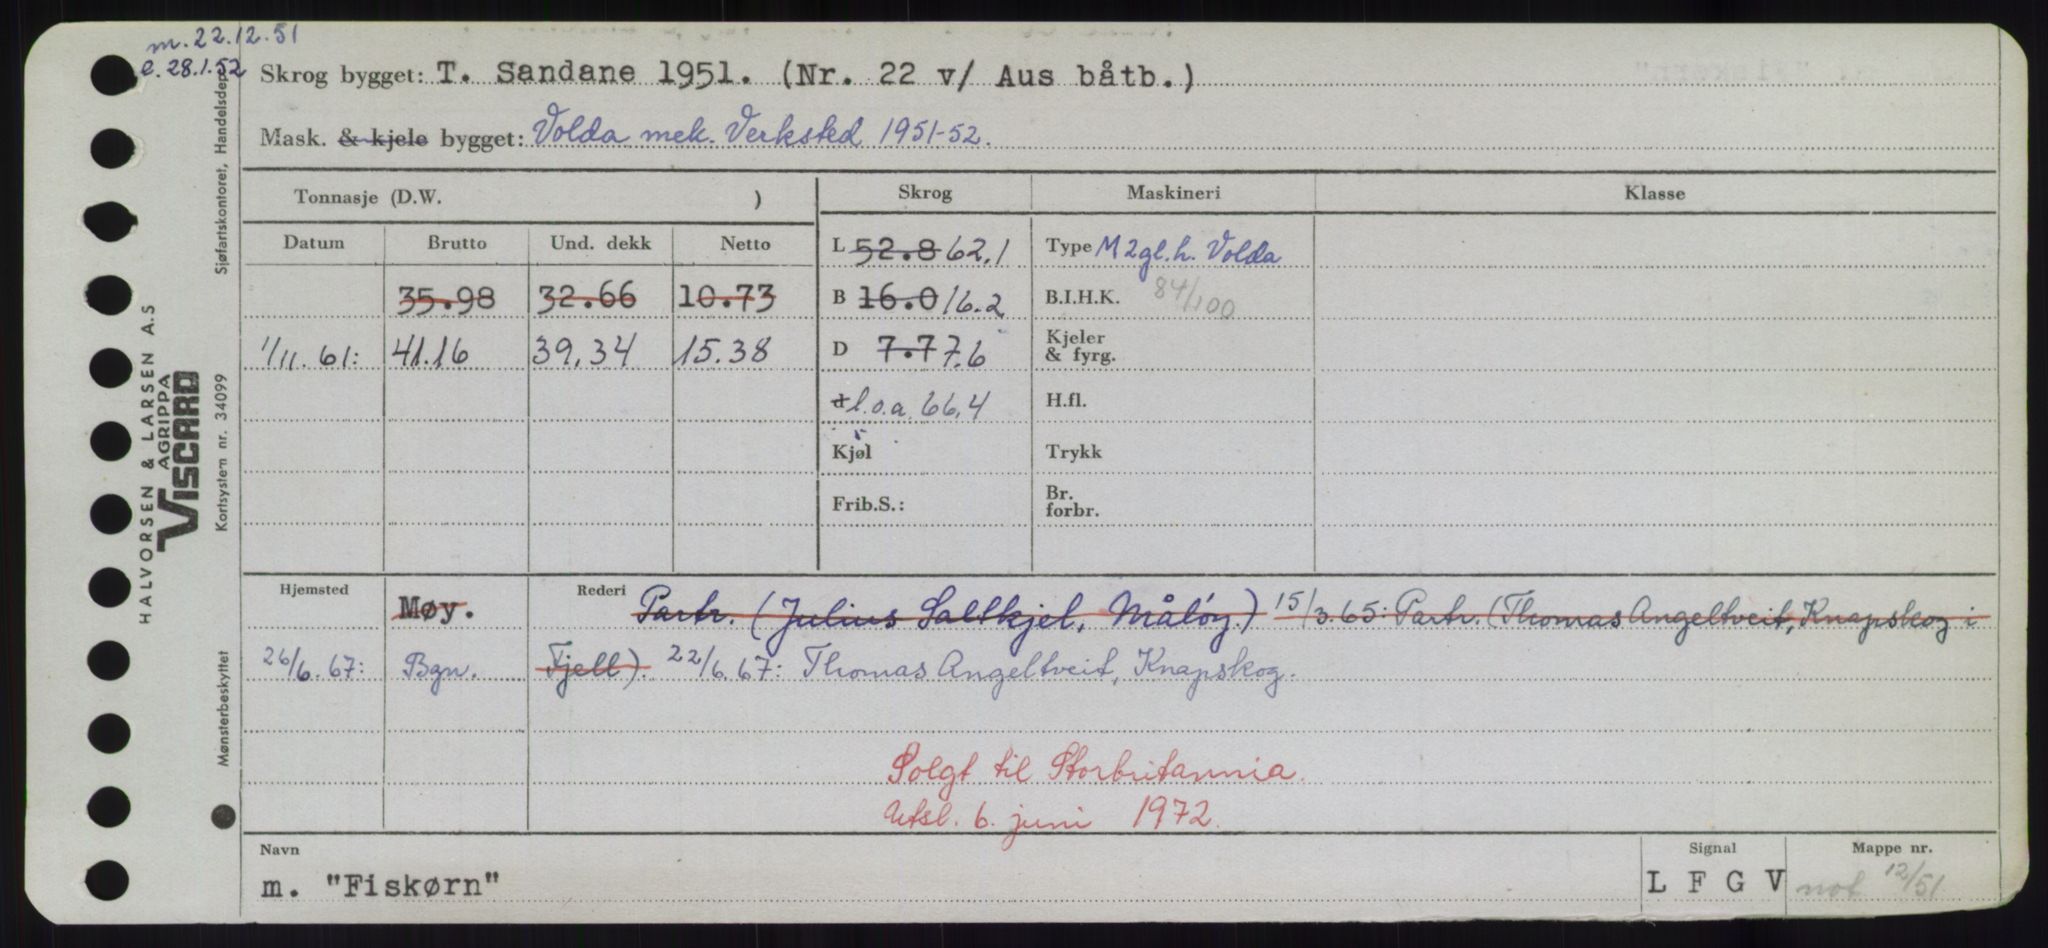 m. 22.12.51
e. 28.1.52
Skrog bygget: T. Sandane 1951. (Nr. 22 v/ Aus båtb.)
Mask. & kjele bygget: Volda mek. Verksted 1951-52.
Tonnasje (D.W. )
Skrog
Maskineri
Klasse
Datum Brutto Und. dekk Netto
L 52.8 62,1
Type M 2gl.h. Volda
35.98 32.66 10.73
B 16.0 16.2
B.I.H.K. 84/100
1/11.61: 41.16 39,34 15.38
D 7.7 7,6
Kjeler
& fyrg.
d l.o.a. 66,4
H.fl.
Kjøl
Trykk
Frib.S.:
Br.
forbr.
Hjemsted Møy.
Rederi Partr. (Julius Saltkjel, Måløy.) 15/3.65: Partr. (Thomas Angeltveit, Knapskog i
26/6.67: Bgn. Fjell). 22/6.67: Thomas Angeltveit, Knapskog.
Solgt til Storbritannia.
Utsl. 6. juni 1972.
Navn
m. "Fiskørn"
Signal
L F G V
Mappe nr.
not 12/51
HALVORSEN & LARSEN A.S
AGRIPPA
VISCARD
Sjøfartskontoret, Handelsdep.
Kortsystem nr. 34099
Mønsterbeskyttet